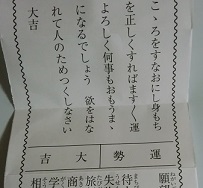 こゝろをすなおにし身もち
を正しくすればますく運
よろしく何事もおもうまゝ
になるでしょう　欲をはな
れて人のためつくしなさい
大吉
運勢　大吉
願望
待
失
旅
商
学
相